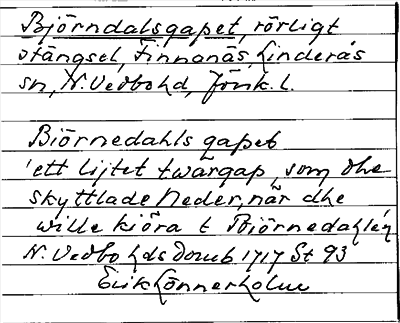 Björndalsgapet, rörligt
stängsel, Finnanäs, Linderås
sn, N. Vedbo hd, Jönk. l.
Biörnedahls gapet
'ett lijtet twärgap, som dhe
skyttlade Neder, när dhe
wille kiöra t Biörnedahlen
N. Vedbo hds domb 1717 St 93
Erik Lönnerholm